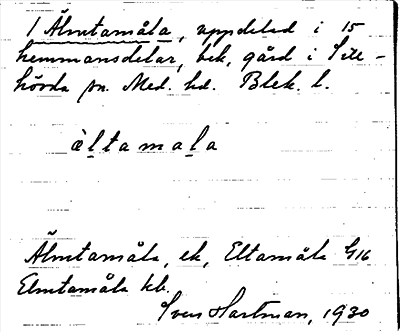 1 Älmtamåla, uppdelad i 15
hemmansdelar, bek, gård i Sille-
hövda sn. Med. hd. Blek. l.
ä̀l̠tamal̠a
Älmtamåla, ek, Eltamåla G16
Elmtamåla kb.
Sven Hartman, 1930